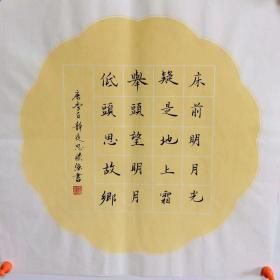 床前明月光
疑是地上霜
舉頭望明月
低頭思故鄉
唐李白靜夜思
書